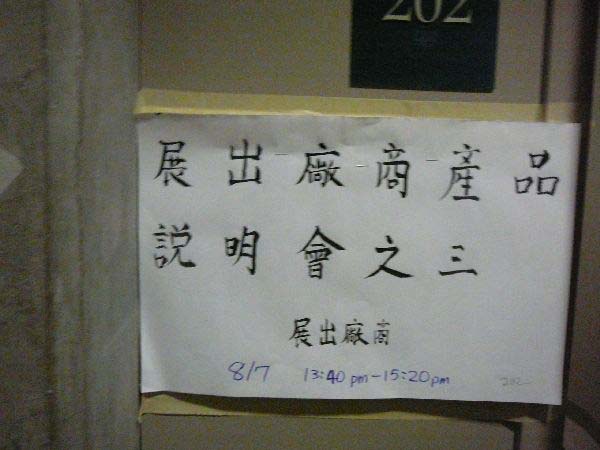 202
展出廠商產品
説明會之三
展出廠商
8/7 13:40 pm-15:20pm
202